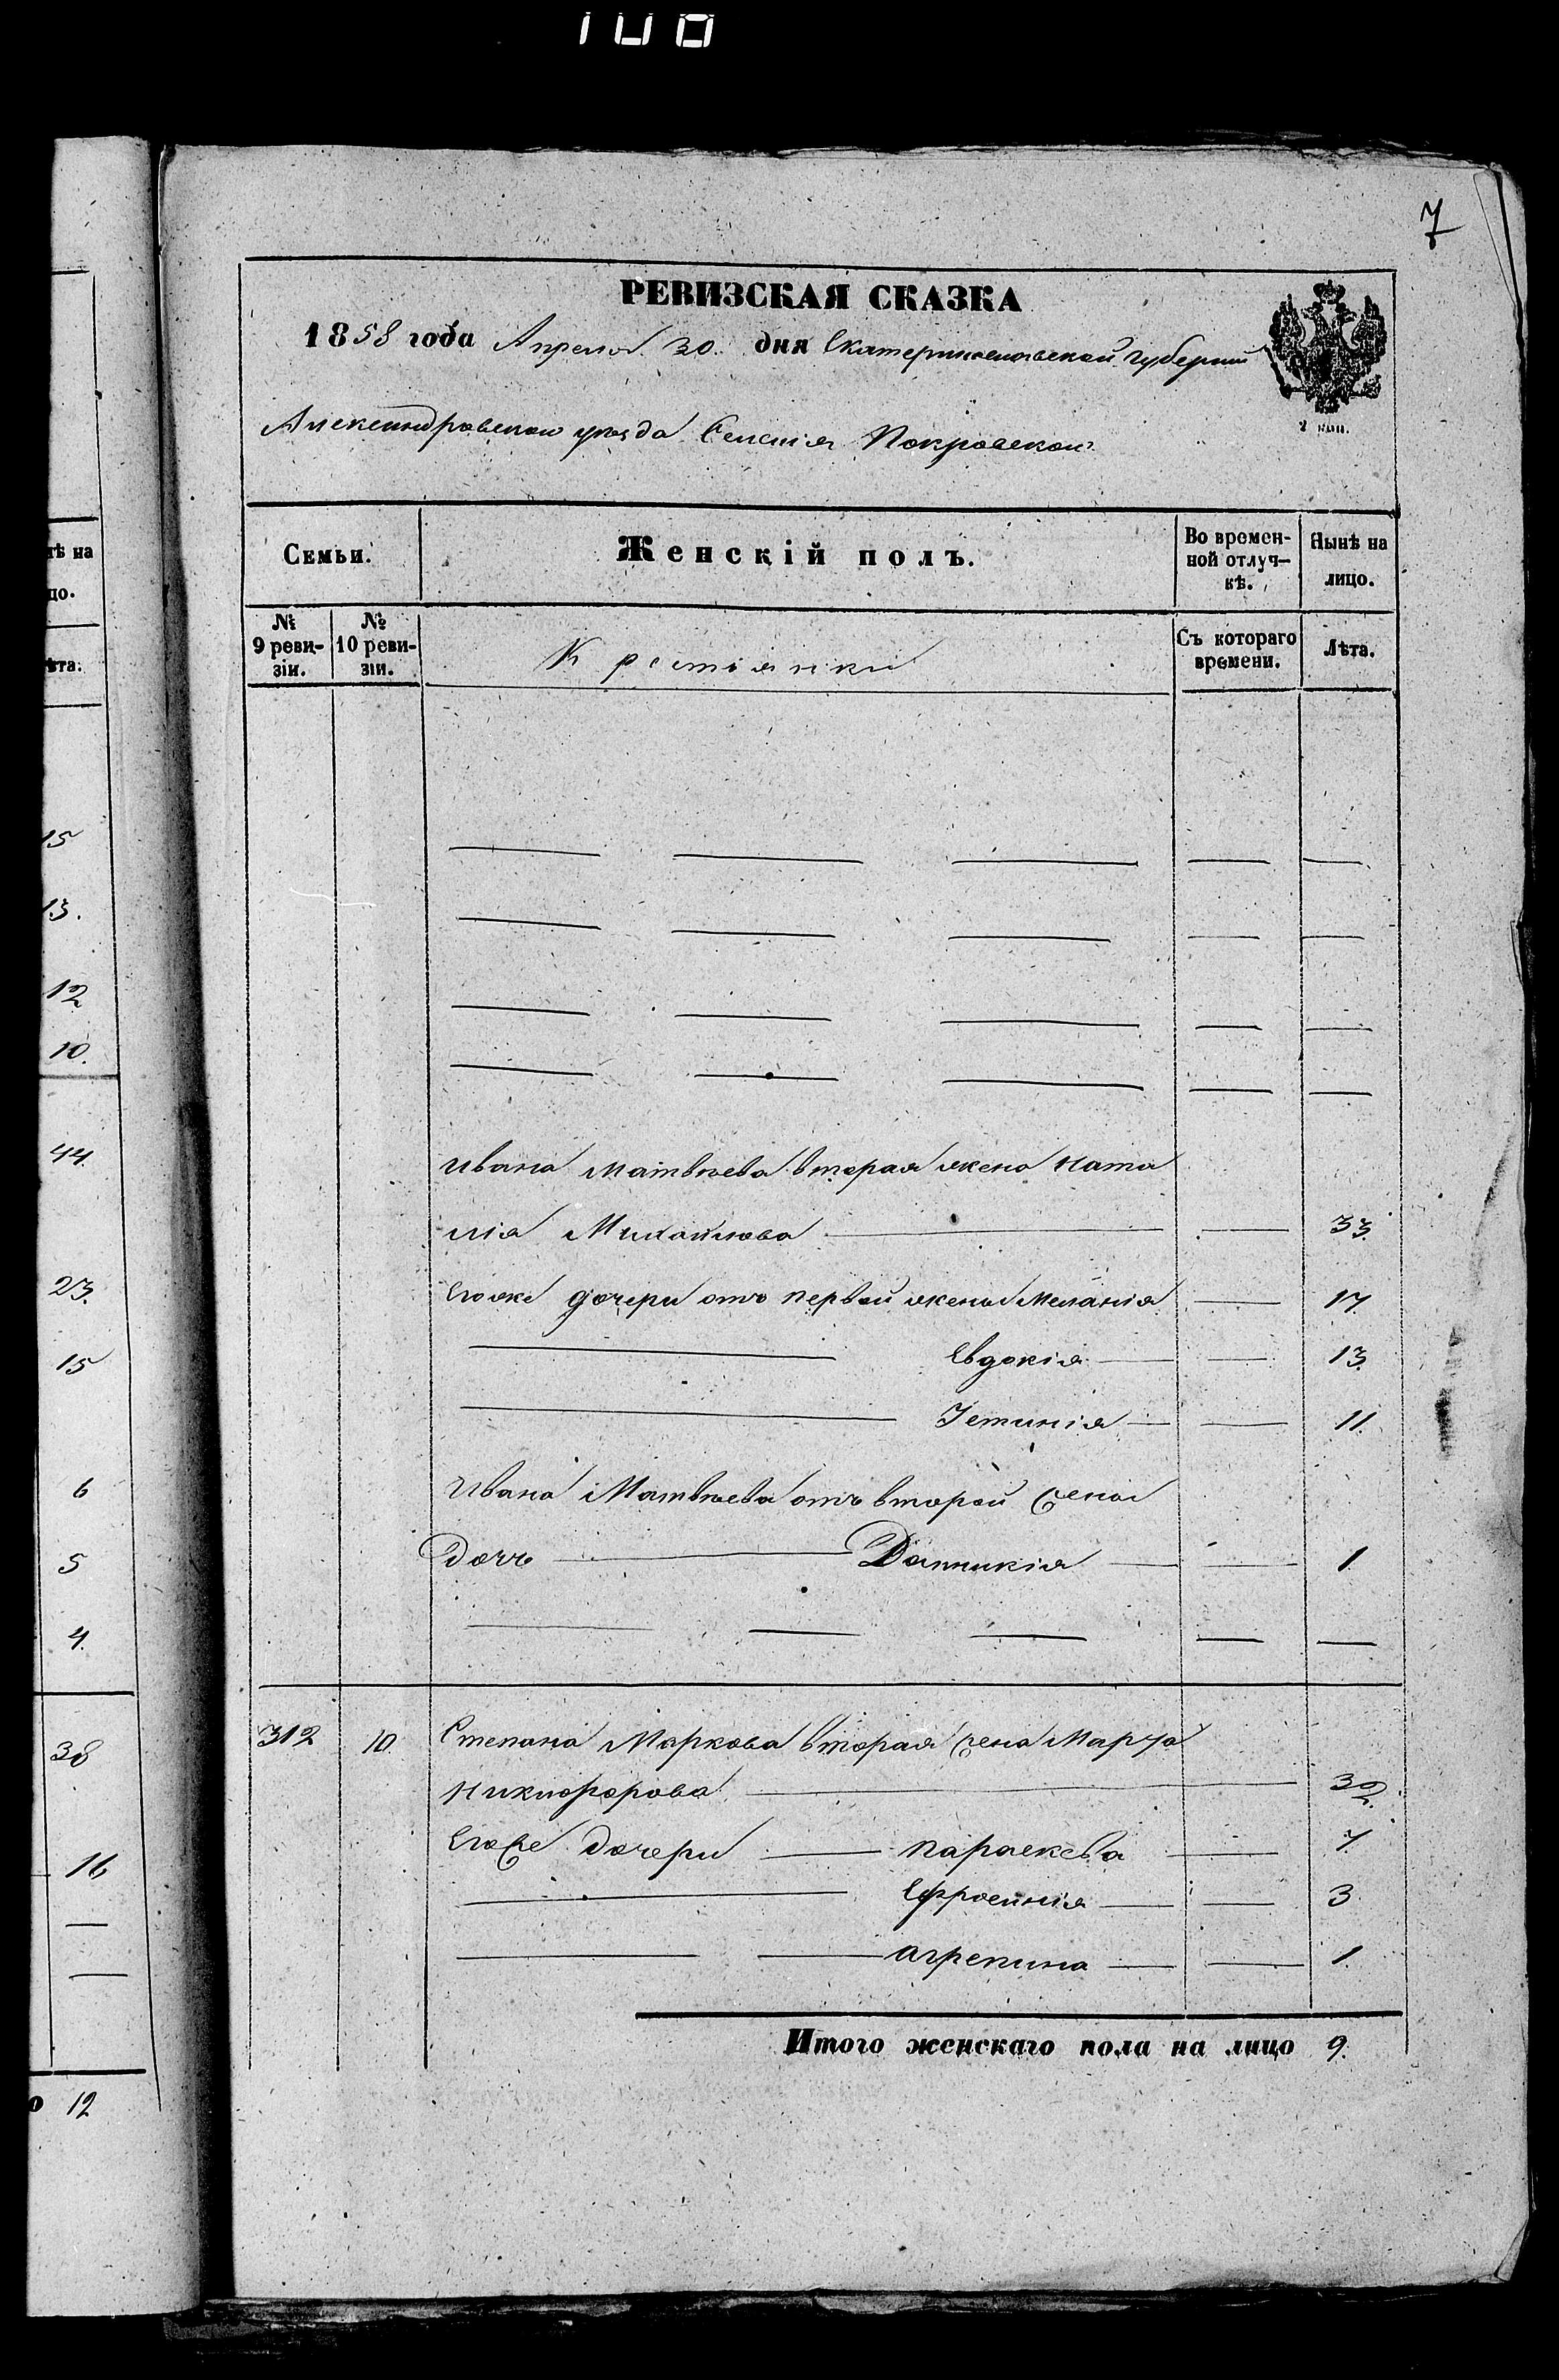 100
7
РЕВИЗСКАЯ СКАЗКА
1858 года Апреля 30 дня Екатеринославской губернии
2 коп.
Александровскаго уезда Селения Покровскаго
Семьи.
Женскій полъ.
Во времен-
ной отлуч-
кѣ.
Нынѣ на
лицо.
№
9 реви-
зіи.
№
10 реви-
зіи.
Крестьянки
Съ котораго
времени.
Лѣта.
Ивана Матвѣева вторая жена Ната
лія Михайлова 33.
Егоже дочери отъ первой жены Меланія 17.
Евдокія 13.
Устинія 11.
Ивана Матвѣева отъ второй жены
дочь Домникія 1.
312 10. Степана Маркова вторая жена Марѳа
Никифорова 32.
Егоже дочери Параскева 7.
Ефросинія 3
Агрепина 1.
Итого женскаго пола на лицо 9.
тѣ на
цо.
ѣта.
15
13.
12
10.
44.
23.
15
6
5
4.
38
16
о 12